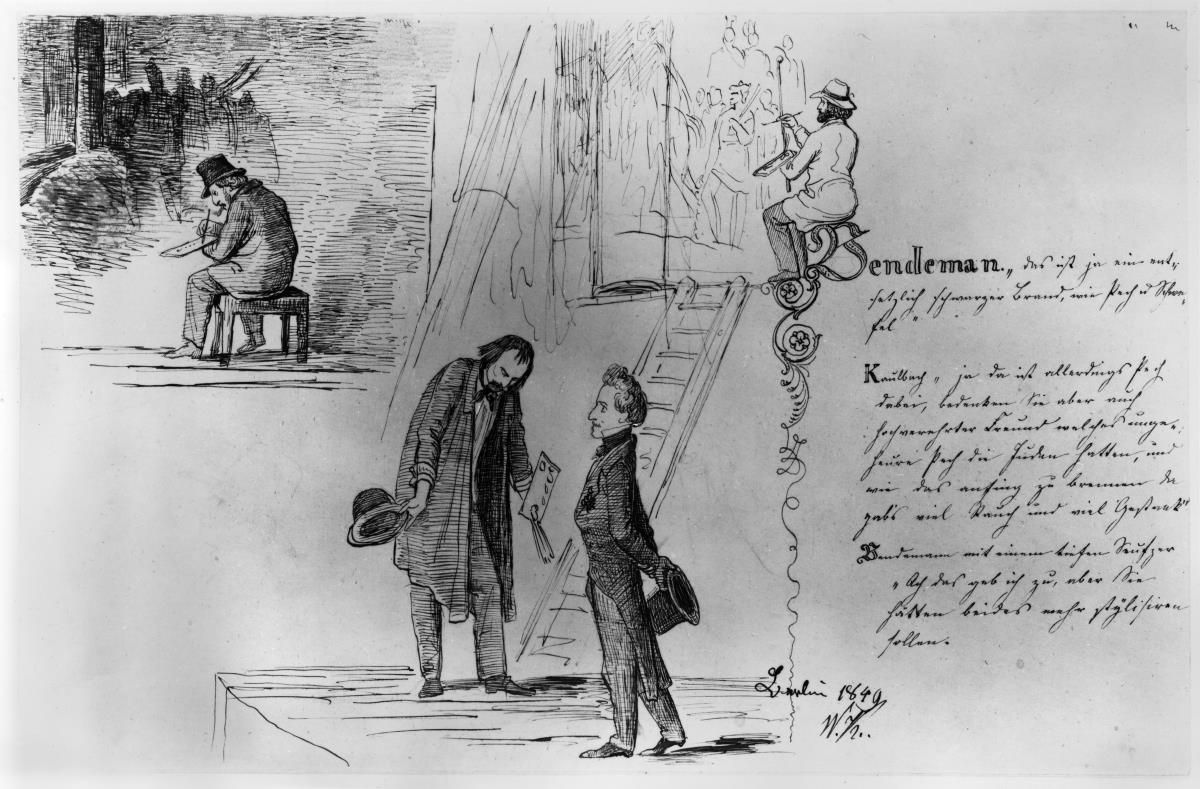 Bendeman. „ das ist ja ein ent-
setzlich schwarzer Brand, wie Pech u Schwe-
fel "
Kaulbach „ ja da ist allerdings Pech
dabei, bedenken Sie aber auch
hochverehrter Freund welches unge-
heure Pech die Juden hatten, und
wie das anfing zu brennen da
gab's viel Rauch und viel Gestank"
Bendemann mit einem tiefen Seufzer
„ Ach das geb ich zu, aber Sie
hätten beides mehr stÿlisiren
sollen.
Berlin 1849
W. K.